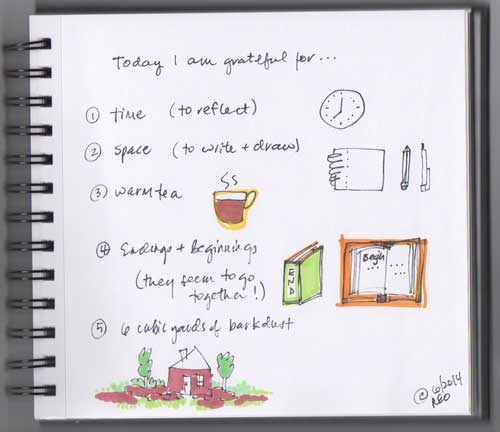 Today I am grateful for...
① time (to reflect)
② space (to write + draw)
③ warm tea
④ Endings + Beginnings
(they seem to go
together!)
END
Begin
⑤ 6 cubic yards of barkdust
© 6/2014
REO